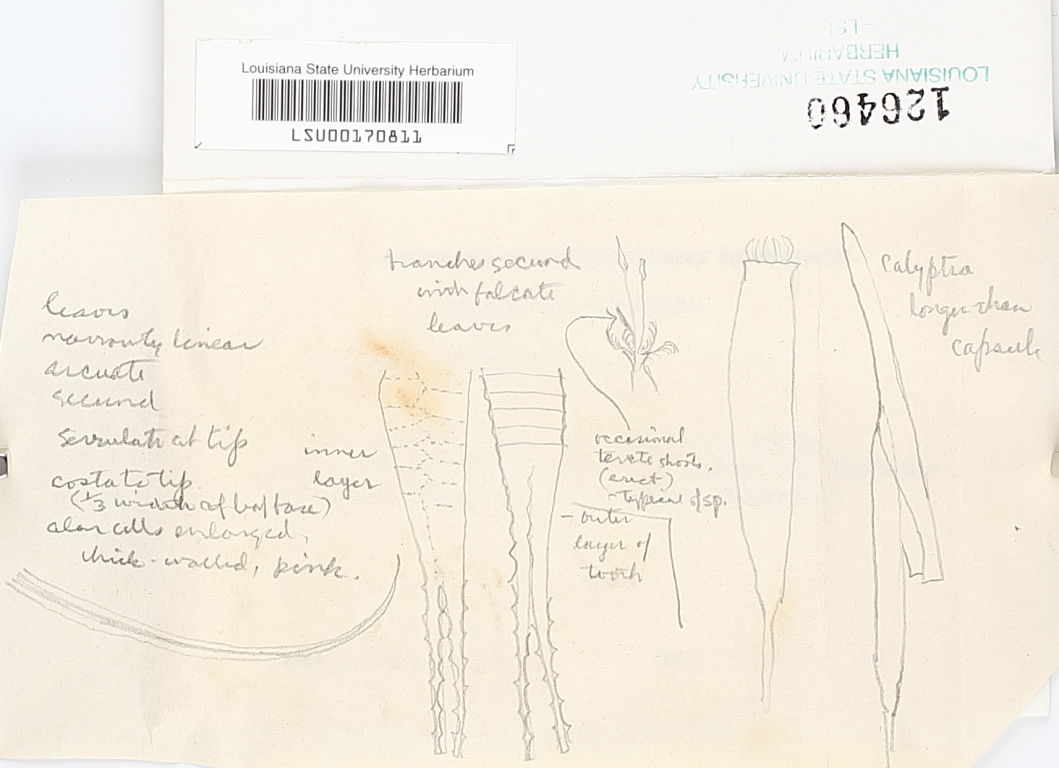 Louisiana State University Herbarium
LSU00170811
LOUISIANA STATE UNIVERSITY
HERBARIUM
-LSU-
126460
leaves
narrowly linear
arcuate
secund
serrulate at tip
costa to tip
(1/3 width of leaf base)
alar cells enlarged,
thick-walled, pink.
branches secund
with falcate
leaves
inner
layer
occasional
terete shoots.
(erect)
- typical of sp.
- outer
layer of
tooth
calyptra
longer than
capsule